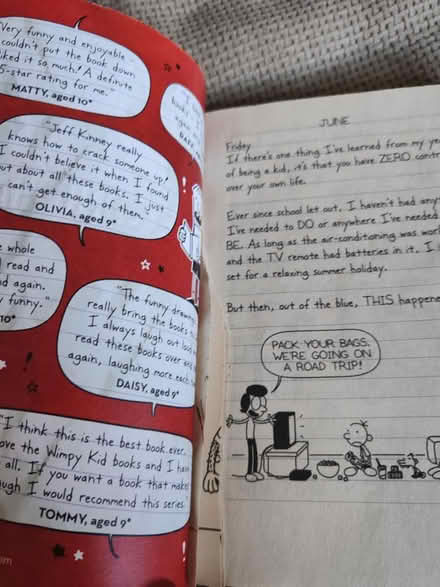 "Very funny and enjoyable
couldn't put the book down
liked it so much! A definite
5-star rating for me."
MATTY, aged 10*
"Jeff Kinney really
knows how to crack someone up!
I couldn't believe it when I found
out about all these books. I just
can't get enough of them."
OLIVIA, aged 9*
whole
read and
again.
funny."
10*
"The funny drawings
really bring the books to
I always laugh out loud
read these books over and
again, laughing more each
DAISY, aged 9*
"I think this is the best book ever.
love the Wimpy Kid books and I have
all. If you want a book that makes
laugh I would recommend this series."
TOMMY, aged 9*
JUNE
Friday
If there's one thing I've learned from my
of being a kid, it's that you have ZERO
over your own life.
Ever since school let out, I haven't had
I've needed to DO or anywhere I've needed
BE. As long as the air-conditioning was
and the TV remote had batteries in it, I
set for a relaxing summer holiday.
But then, out of the blue, THIS
PACK YOUR BAGS,
WE'RE GOING ON
A ROAD TRIP!